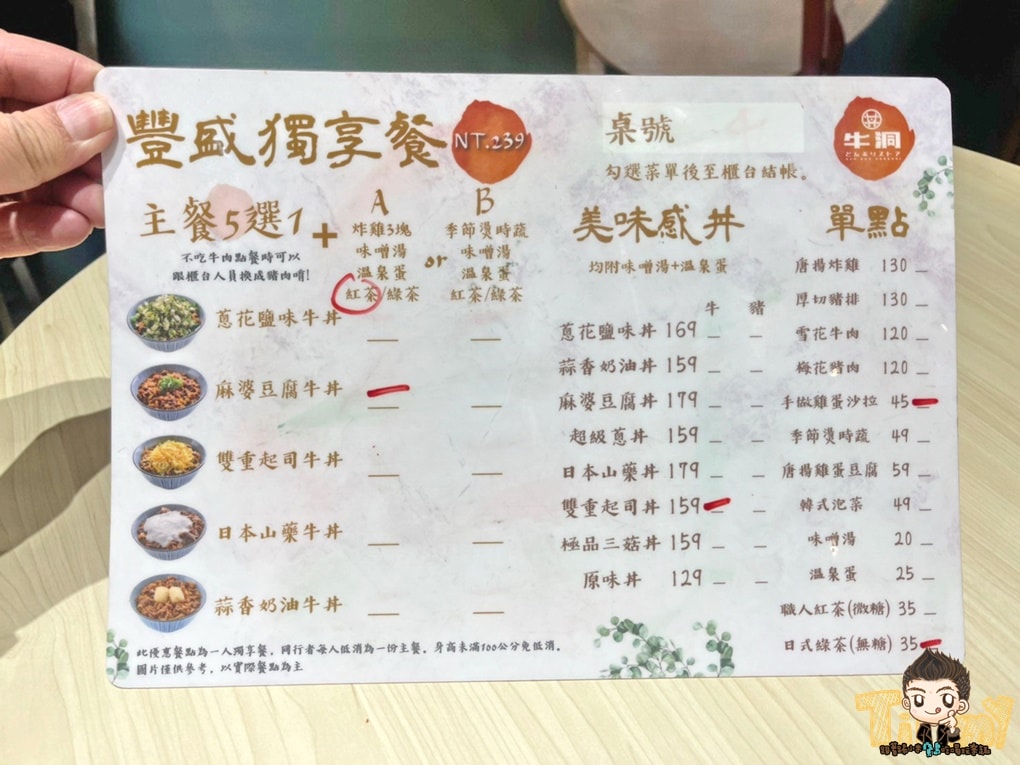 豐盛獨享餐 NT.239
主餐5選1 +
不吃牛肉點餐時可以
跟櫃台人員換成豬肉唷!
A
炸雞3塊
味噌湯
溫泉蛋
紅茶/綠茶
or
B
季節燙時蔬
味噌湯
溫泉蛋
紅茶/綠茶
蔥花鹽味牛丼
麻婆豆腐牛丼
雙重起司牛丼
日本山藥牛丼
蒜香奶油牛丼
此優惠餐點為一人獨享餐,同行者每人低消為一份主餐。身高未滿100公分免低消。
圖片僅供參考,以實際餐點為主
桌號
勾選菜單後至櫃台結帳。
牛洞
美味感丼
均附味噌湯+溫泉蛋
牛 豬
蔥花鹽味丼 169
蒜香奶油丼 159
麻婆豆腐丼 179
超級蔥丼 159
日本山藥丼 179
雙重起司丼 159
極品三菇丼 159
原味丼 129
單點
唐揚炸雞 130
厚切豬排 130
雪花牛肉 120
梅花豬肉 120
手做雞蛋沙拉 45
季節燙時蔬 49
唐揚雞蛋豆腐 59
韓式泡菜 49
味噌湯 20
溫泉蛋 25
職人紅茶(微糖) 35
日式綠茶(無糖) 35